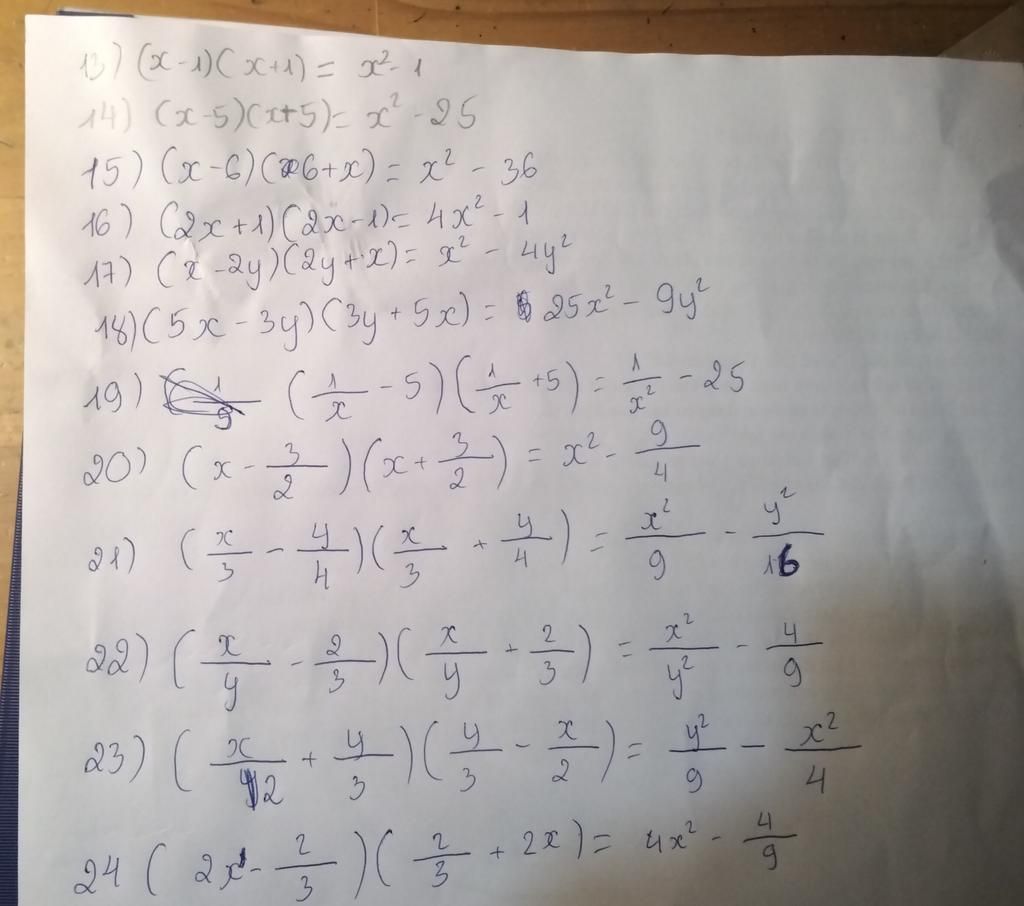 13) (x-1)(x+1) = x² - 1
14) (x-5)(x+5) = x² - 25
15) (x-6)(6+x) = x² - 36
16) (2x+1)(2x-1) = 4x² - 1
17) (x-2y)(2y+x) = x² - 4y²
18) (5x - 3y)(3y + 5x) = 25x² - 9y²
19) (1/x - 5)(1/x + 5) = 1/x² - 25
20) (x - 3/2)(x + 3/2) = x² - 9/4
21) (x/3 - y/4)(x/3 + y/4) = x²/9 - y²/16
22) (x/y - 2/3)(x/y + 2/3) = x²/y² - 4/9
23) (x/2 + y/3)(y/3 - x/2) = y²/9 - x²/4
24 (2x - 2/3)(2/3 + 2x) = 4x² - 4/9